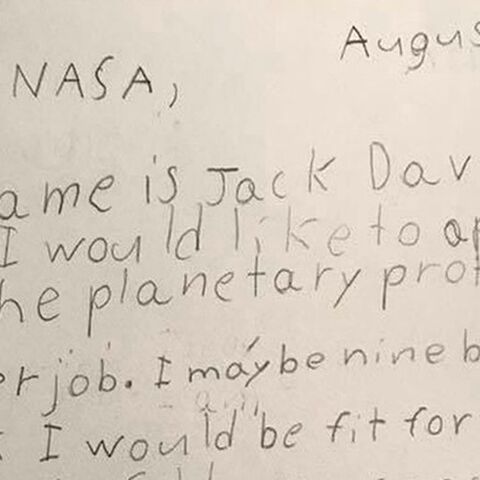 Augus
NASA,
ame is Jack Dav
I would like to ap
he planetary prot
er job. I maybe nine b
I would be fit for